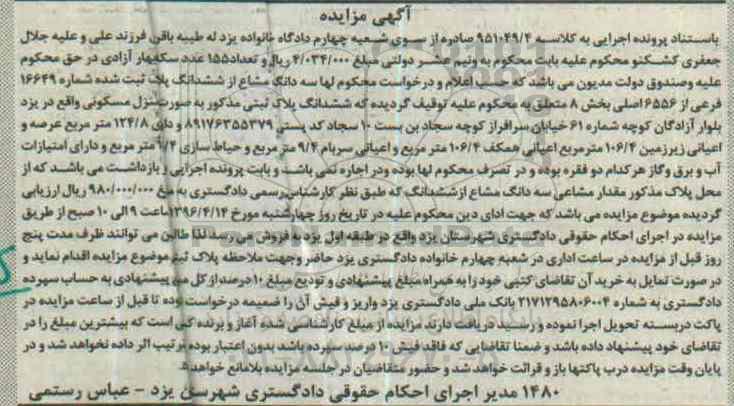 آگهی مزایده
باستناد پرونده اجرایی به کلاسه ۹۵۱۰۴۹/۴ صادره از سوی شعبه چهارم دادگاه خانواده یزد له طیبه باقی فرزند علی و علیه جلال
جعفری کشکنو محکوم علیه بابت محکوم به ونیم عشر دولتی مبلغ ۴/۰۳۴/۰۰۰ ریال و تعداد ۱۵۵ عدد سکه بهار آزادی در حق محکوم
علیه وصندوق دولت مدیون می باشد که اعلام و درخواست محکوم لها سه دانگ مشاع از ششدانگ پلاک ثبت شده شماره ۱۶۶۴۹
فرعی از ۶۵۵۶ اصلی بخش ۸ متعلق به محکوم علیه توقیف گردیده که ششدانگ پلاک ثبتی مذکور به صورت منزل مسکونی واقع در یزد
بلوار آزادگان کوچه شماره ۶۱ خیابان سرافراز کوچه سجاد بن بست ۱۰ سجاد کد پستی ۸۹۱۷۶۳۵۵۳۷۹ و دارای ۱۲۴/۸ متر مربع عرصه و
اعیانی زیرزمین ۱۰۶/۴ مترمربع اعیانی همکف ۱۰۶/۴ متر مربع و اعیانی سربام ۹/۴ متر مربع و حیاط سازی متر مربع و دارای امتیازات
آب و برق وگاز هرکدام دو فقره بوده و در تصرف محکوم لها بوده ودر اجاره نمی باشد و بابت پرونده اجرایی بازداشت می باشد که از
محل پلاک مذکور مقدار مشاعی سه دانگ مشاع از ششدانگ که طبق نظر کارشناس رسمی دادگستری به مبلغ ۹۸۰/۰۰۰/۰۰۰ ریال ارزیابی
گردیده موضوع مزایده می باشد که جهت ادای دین محکوم علیه در تاریخ روز چهارشنبه مورخ ۱۳۹۶/۴/۱۴ ساعت ۹ الی ۱۰ صبح از طریق
مزایده در اجرای احکام حقوقی دادگستری شهرستان یزد واقع در طبقه اول یزد به فروش می رسد لذا طالبین می توانند ظرف مدت پنج
روز قبل از مزایده در ساعت اداری در شعبه چهارم خانواده دادگستری یزد حاضر وجهت ملاحظه پلاک ثبتی موضوع مزایده اقدام نماید و
در صورت تمایل به خرید آن تقاضای کتبی خود را به همراه مبلغ پیشنهادی و تودیع مبلغ ۱۰ درصد از کل مبلغ پیشنهادی به حساب سپرده
دادگستری به شماره ۲۱۷۱۲۹۵۸۰۶۰۰۴ بانک ملی دادگستری یزد واریز و فیش آن را ضمیمه درخواست بوده تا قبل از ساعت مزایده در
پاکت دربسته تحویل اجرا نموده و رسید دریافت دارند مزایده از مبلغ کارشناسی شده آغاز و برنده کسی است که بیشترین مبلغ را در
تقاضای خود پیشنهاد داده باشد و ضمنا تقاضایی که فاقد فیش ۱۰ درصد سپرده باشد بدون اعتبار بوده ترتیب اثر داده نخواهد شد و در
پایان وقت مزایده درب پاکتها باز و قرائت خواهد شد و حضور متقاضیان در جلسه مزایده بلامانع خواهد
۱۴۸۰ مدیر اجرای احکام حقوقی دادگستری شهرستان یزد - عباس رستمی